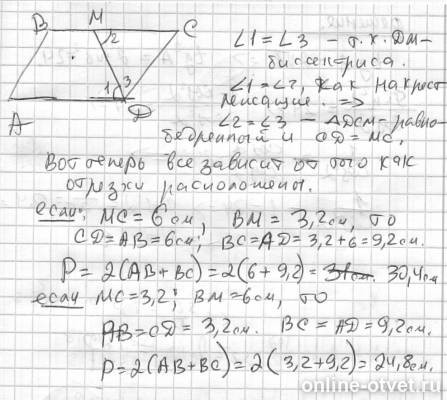 B M C
2
1 3
A D
∠1 = ∠3 – т.к. DM-
биссектриса.
∠1 = ∠2, как накрест
лежащие. =>
∠2 = ∠3 – ΔDCM- равно-
бедренный и CD = MC,
Вот теперь все зависит от того как
отрезки расположены.
если: MC = 6 см, BM = 3,2 см, то
CD = AB = 6 см; BC = AD = 3,2 + 6 = 9,2 см.
P = 2(AB + BC) = 2(6 + 9,2) = 30,4 см
если MC = 3,2; BM = 6 см, то
AB = CD = 3,2 см. BC = AD = 9,2 см.
P = 2(AB + BC) = 2(3,2 + 9,2) = 24,8 см.
online-otvet.ru